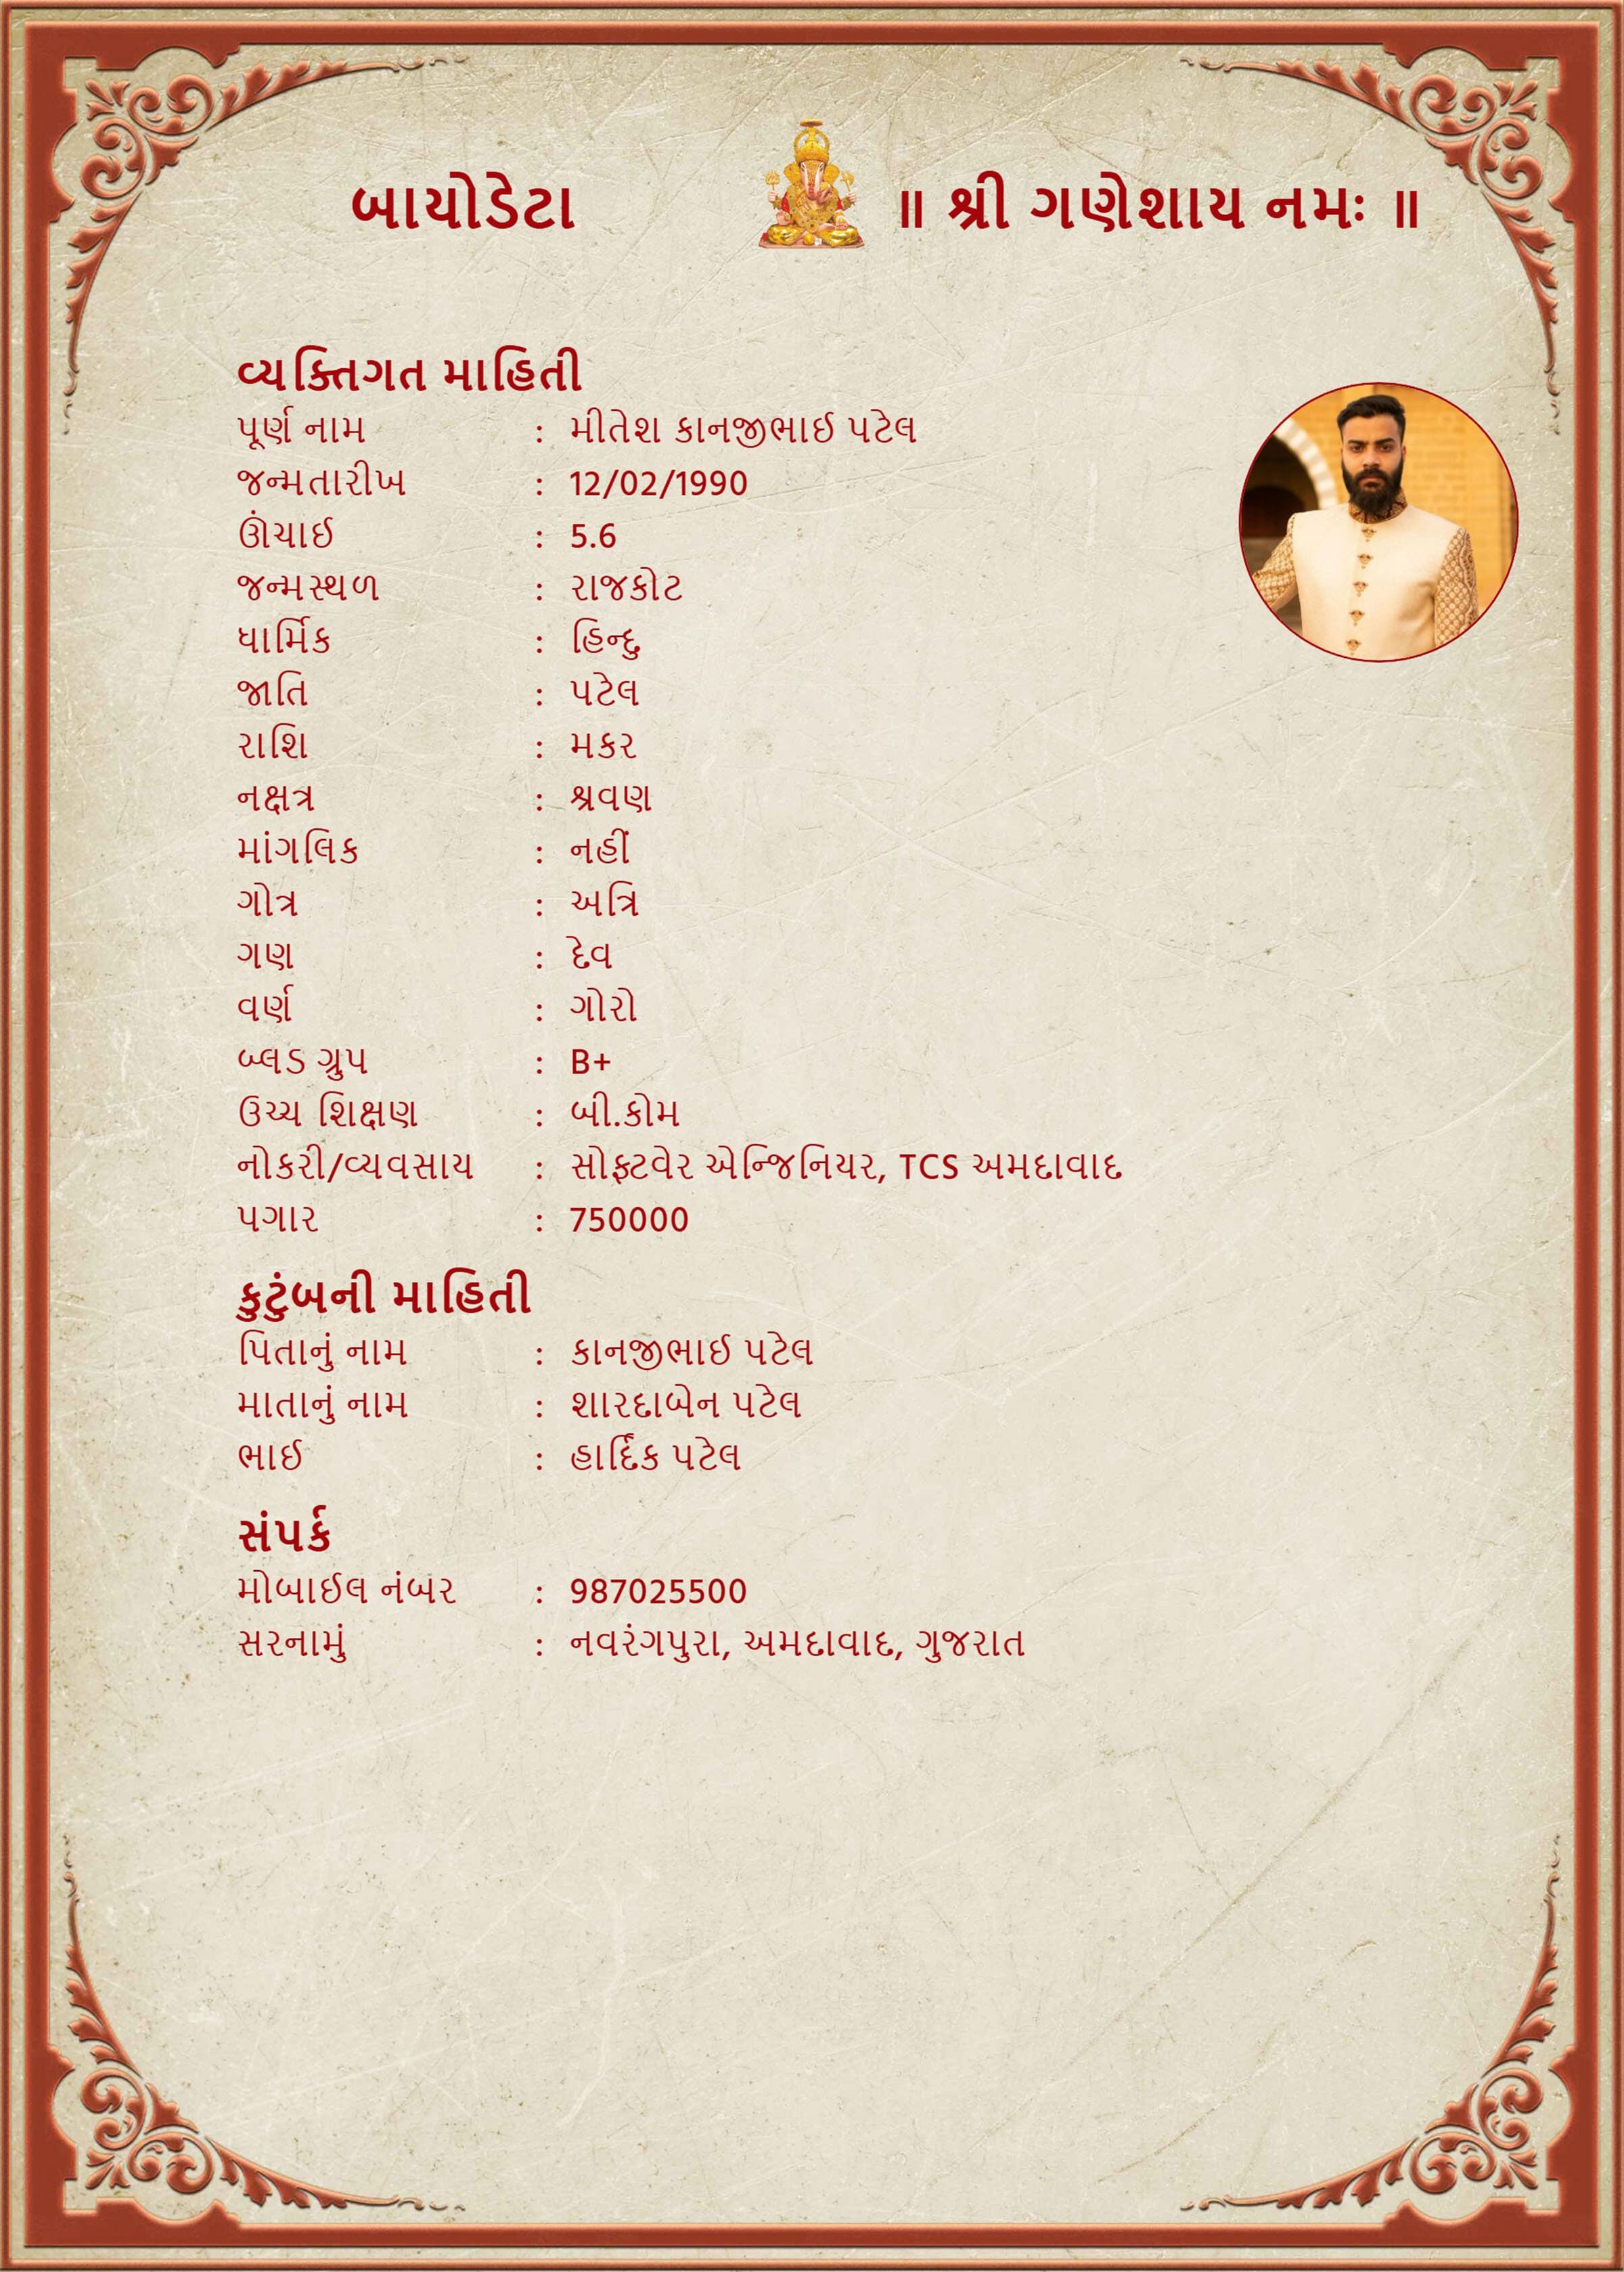 બાયોડેટા
॥ શ્રી ગણેશાય નમઃ ॥
વ્યક્તિગત માહિતી
પૂર્ણ નામ : મીતેશ કાનજીભાઈ પટેલ
જન્મતારીખ : 12/02/1990
ઊંચાઈ : 5.6
જન્મસ્થળ : રાજકોટ
ધાર્મિક : હિન્દુ
જાતિ : પટેલ
રાશિ : મકર
નક્ષત્ર : શ્રવણ
માંગલિક : નહીં
ગોત્ર : અત્રિ
ગણ : દેવ
વર્ણ : ગોરો
બ્લડ ગ્રુપ : B+
ઉચ્ચ શિક્ષણ : બી.કોમ
નોકરી/વ્યવસાય : સોફ્ટવેર એન્જિનિયર, TCS અમદાવાદ
પગાર : 750000
કુટુંબની માહિતી
પિતાનું નામ : કાનજીભાઈ પટેલ
માતાનું નામ : શારદાબેન પટેલ
ભાઈ : હાર્દિક પટેલ
સંપર્ક
મોબાઈલ નંબર : 987025500
સરનામું : નવરંગપુરા, અમદાવાદ, ગુજરાત